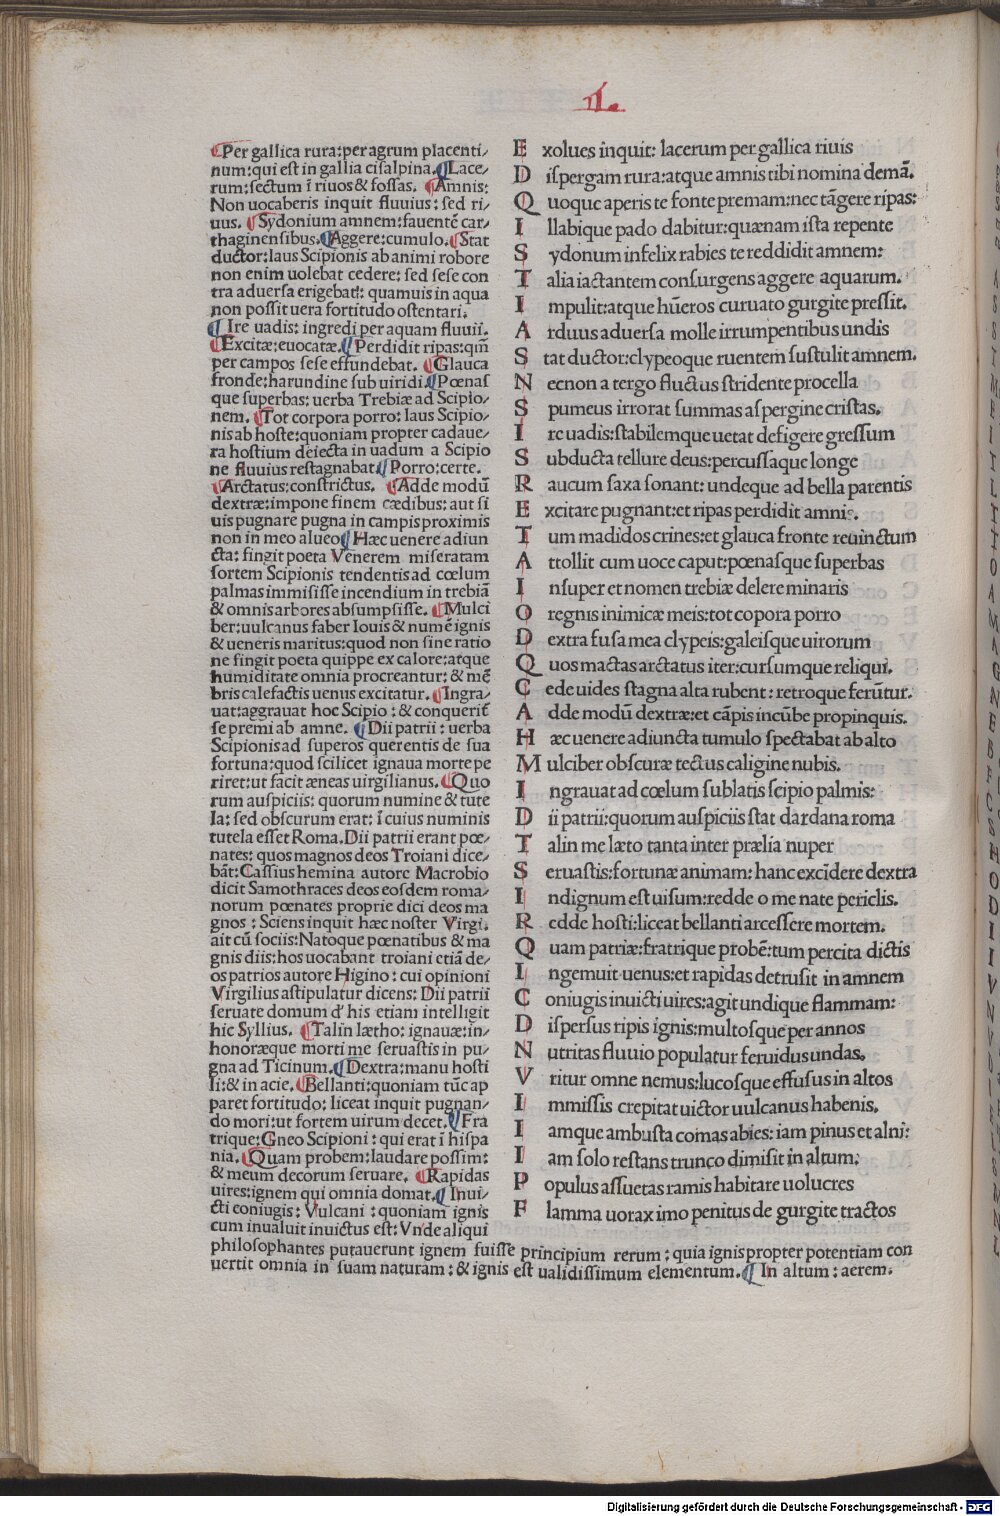 ¶Per gallica rura:per agrum placenti/
num:qui est in gallia cisalpina.¶Lace/
rum:sectum ī riuos & fossas. ¶Amnis:
Non uocaberis inquit fluuius:sed ri/
uus. ¶Sydonium amnem:fauentē car/
thaginensibus.¶Aggere:cumulo.¶Stat
ductor:laus Scipionis ab animi robore
non enim uolebat cedere: sed sese con
tra aduersa erigebat: quamuis in aqua
non possit uera fortitudo ostentari.
¶ Ire uadis: ingredi per aquam fluuii.
¶Excitæ:euocatæ.¶Perdidit ripas:qm̄
per campos sese effundebat. ¶Glauca
fronde:harundine sub uiridi.¶Pœnas
que superbas: uerba Trebiæ ad Scipio/
nem. ¶Tot corpora porro: laus Scipio/
nis ab hoste:quoniam propter cadaue/
ra hostium deiecta in uadum a Scipio
ne fluuius restagnabat.¶Porro:certe.
¶Arctatus:constrictus. ¶Adde modū
dextræ:impone finem cædibus: aut si
uis pugnare pugna in campis proximis
non in meo alueo¶Hæc uenere adiun
cta: fingit poeta Venerem miseratam
sortem Scipionis tendentis ad cœlum
palmas immisisse incendium in trebiā
& omnis arbores absumpsisse. ¶Mulci
ber:uulcanus faber Iouis & numē ignis
& ueneris maritus:quod non sine ratio
ne fingit poeta quippe ex calore:atque
humiditate omnia procreantur: & mē
bris calefactis uenus excitatur. ¶Ingra/
uat:aggrauat hoc Scipio : & conquerit̄
se premi ab amne. ¶Dii patrii : uerba
Scipionis ad superos querentis de sua
fortuna:quod scilicet ignaua morte pe
riret:ut facit æneas uirgilianus. ¶Quo
rum auspiciis: quorum numine & tute
la: sed obscurum erat: ī cuius numinis
tutela esset Roma.Dii patrii erant pœ/
nates: quos magnos deos Troiani dice/
bāt: Cassius hemina autore Macrobio
dicit Samothraces deos eosdem roma/
norum pœnates proprie dici deos ma
gnos : Sciens inquit hæc noster Virgi.
ait cū sociis:Natoque pœnatibus & ma
gnis diis:hos uocabant troiani etiā de/
os patrios autore Higino : cui opinioni
Virgilius astipulatur dicens: Dii patrii
seruate domum d' his etiam intelligit
hic Syllius. ¶Talin lætho: ignauæ:in/
honoræque morti me seruastis in pu/
gna ad Ticinum.¶Dextra:manu hosti
li:& in acie.¶Bellanti:quoniam tūc ap
paret fortitudo: liceat inquit pugnan/
do mori:ut fortem uirum decet.¶Fra
trique:Gneo Scipioni : qui erat ī hispa
nia. ¶Quam probem:laudare possim:
& meum decorum seruare. ¶Rapidas
uires:ignem qui omnia domat.¶ Inui/
cti coniugis: Vulcani : quoniam ignis
cum inualuit inuictus est: Vnde aliqui
philosophantes putauerunt ignem fuisse principium rerum : quia ignis propter potentiam con
uertit omnia in suam naturam : & ignis est ualidissimum elementum.¶ In altum : aerem.
II.
E xolues inquit: lacerum per gallica riuis
D ispergam rura:atque amnis tibi nomina demā.
Q uoque aperis te fonte premam:nec tāgere ripas:
I llabique pado dabitur:quænam ista repente
S ydonum infelix rabies te reddidit amnem:
T alia iactantem consurgens aggere aquarum.
I mpulit:atque hūeros curuato gurgite pressit.
A rduus aduersa molle irrumpentibus undis
S tat ductor:clypeoque ruentem sustulit amnem.
N ecnon a tergo fluctus stridente procella
S pumeus irrorat summas aspergine cristas.
I re uadis:stabilemque uetat defigere gressum
S ubducta tellure deus:percussaque longe
R aucum saxa sonant: undeque ad bella parentis
E xcitare pugnant:et ripas perdidit amnis.
T um madidos crines:et glauca fronte reuinctum
A ttollit cum uoce caput:pœnasque superbas
I nsuper et nomen trebiæ delere minaris
O regnis inimicæ meis:tot copora porro
D extra fusa mea clypeis:galeisque uirorum
Q uos mactas arctatus iter:cursumque reliqui.
C ede uides stagna alta rubent : retroque ferūtur.
A dde modū dextræ:et cāpis incūbe propinquis.
H æc uenere adiuncta tumulo spectabat ab alto
M ulciber obscuræ tectus caligine nubis.
I ngrauat ad cœlum sublatis scipio palmis:
D ii patrii:quorum auspiciis stat dardana roma
T alin me læto tanta inter prælia nuper
S eruastis:fortunæ animam: hanc excidere dextra
I ndignum est uisum:redde o me nate periclis.
R edde hosti:liceat bellanti arcessere mortem.
Q uam patriæ:fratrique probē:tum percita dictis
I ngemuit uenus:et rapidas detrusit in amnem
C oniugis inuicti uires:agit undique flammam:
D ispersus ripis ignis:multosque per annos
N utritas fluuio populatur feruidus undas.
V ritur omne nemus:lucosque effusus in altos
I mmissis crepitat uictor uulcanus habenis.
I amque ambusta comas abies: iam pinus et alni:
I am solo restans trunco dimisit in altum:
P opulus assuetas ramis habitare uolucres
F lamma uorax imo penitus de gurgite tractos
Digitalisierung gefördert durch die Deutsche Forschungsgemeinschaft - DFG